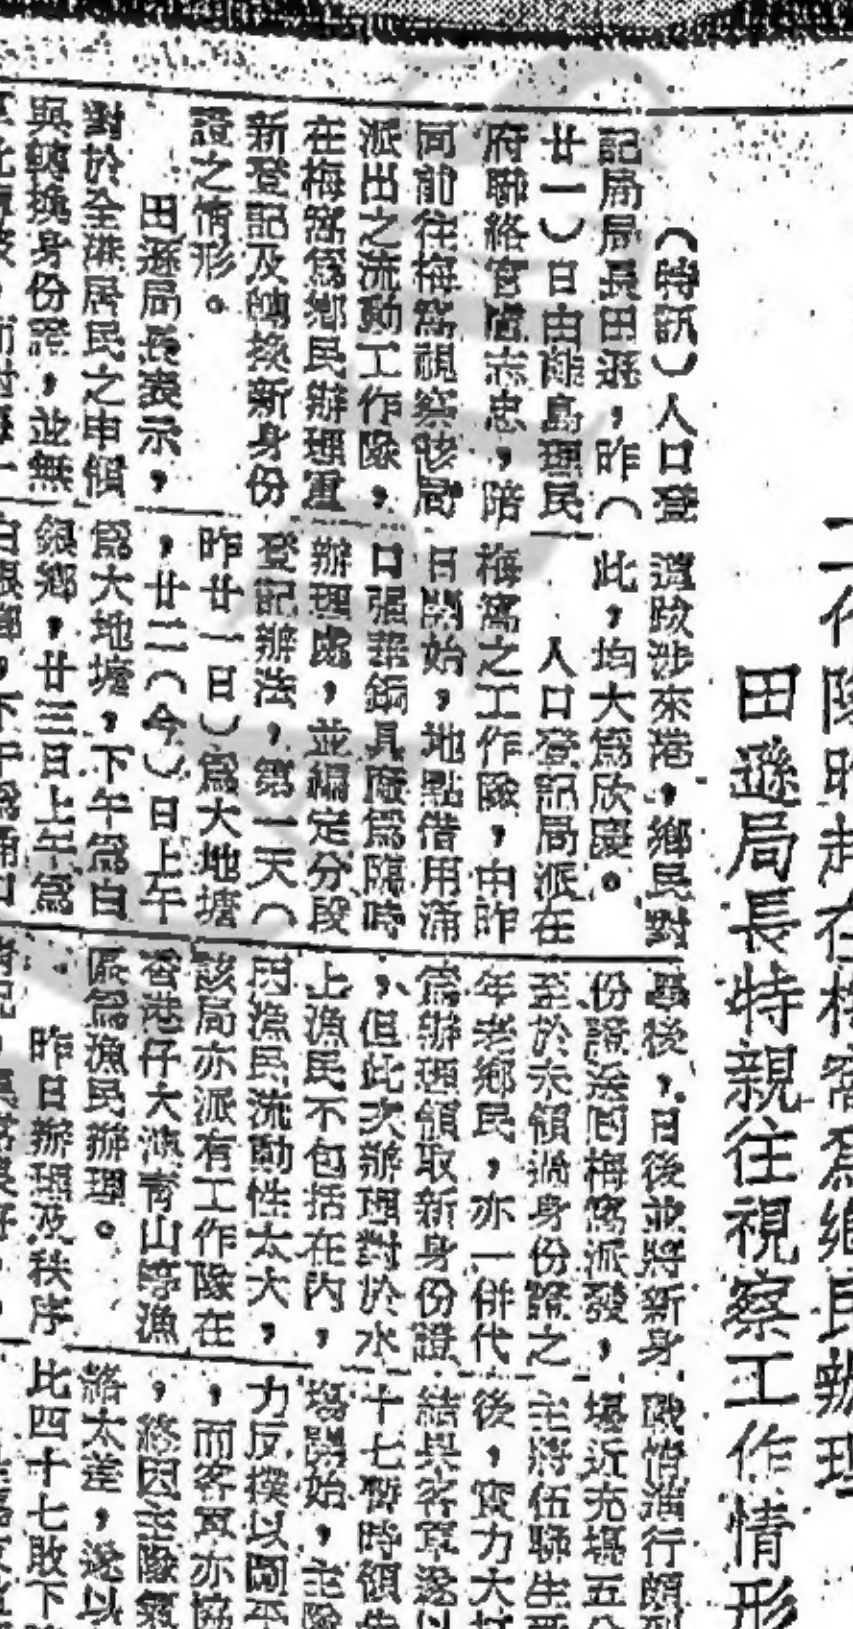 工作隊昨起在梅窩為鄉民辦理
田遜局長特親往視察工作情形
（特訊）人口登
記局局長田遜，昨（
廿一）日由離島理民
府聯絡官盧志忠，陪
同前往梅窩視察該局
派出之流動工作隊，
在梅窩為鄉民辦理重
新登記及轉換新身份
證之情形。
田遜局長表示，
對於全港居民之申領
與轉換身份證，並無
遠跋涉來港，鄉民對
此，均大為欣慶。
人口登記局派在
梅窩之工作隊，由昨
日開始，地點借用涌
口張華銅具廠為臨時
辦理處，並編定分段
登記辦法，第一天（
昨廿一日）為大地塘
，廿二（今）日上午
為大地塘，下午為白
銀鄉，廿三日上午為
白銀鄉，下午為涌口
畢後，日後並將新身
份證送回梅窩派發，
至於未領過身份證之
年老鄉民，亦一併代
為辦理領取新身份證
，但此次辦理對於水
上漁民不包括在內，
因漁民流動性太大，
該局亦派有工作隊在
香港仔大澳青山等漁
區為漁民辦理。
昨日辦理及秩序
戰情進行頗
場近充場五
主將伍聯生
後，實力大
結果客軍遂以
十七暫時領先
場開始，主隊
力反撲以圖平
，而客軍亦協
，終因主隊
絡太差，遂以
比四十七敗下